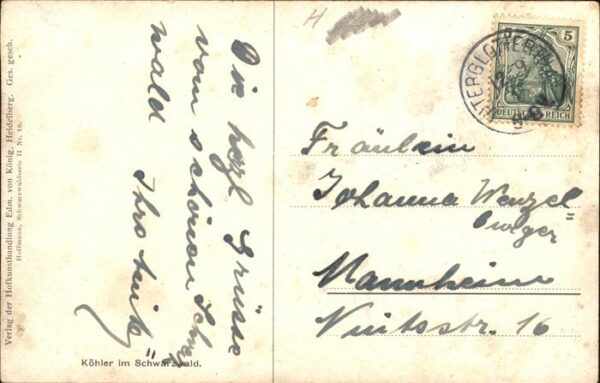 Verlag der Hofkunsthandlung Edm. von König, Heidelberg. Ges. gesch.
Hoffmann, Schwarzwaldserie II Nr. 10.
Die herzl Grüsse
vom schönen Schwarz
wald
Köhler im Schwarzwald.
H
5
DEUTSCHES REICH
Fräulein
Johanna Wenzel=
burger
Mannheim
str. 16